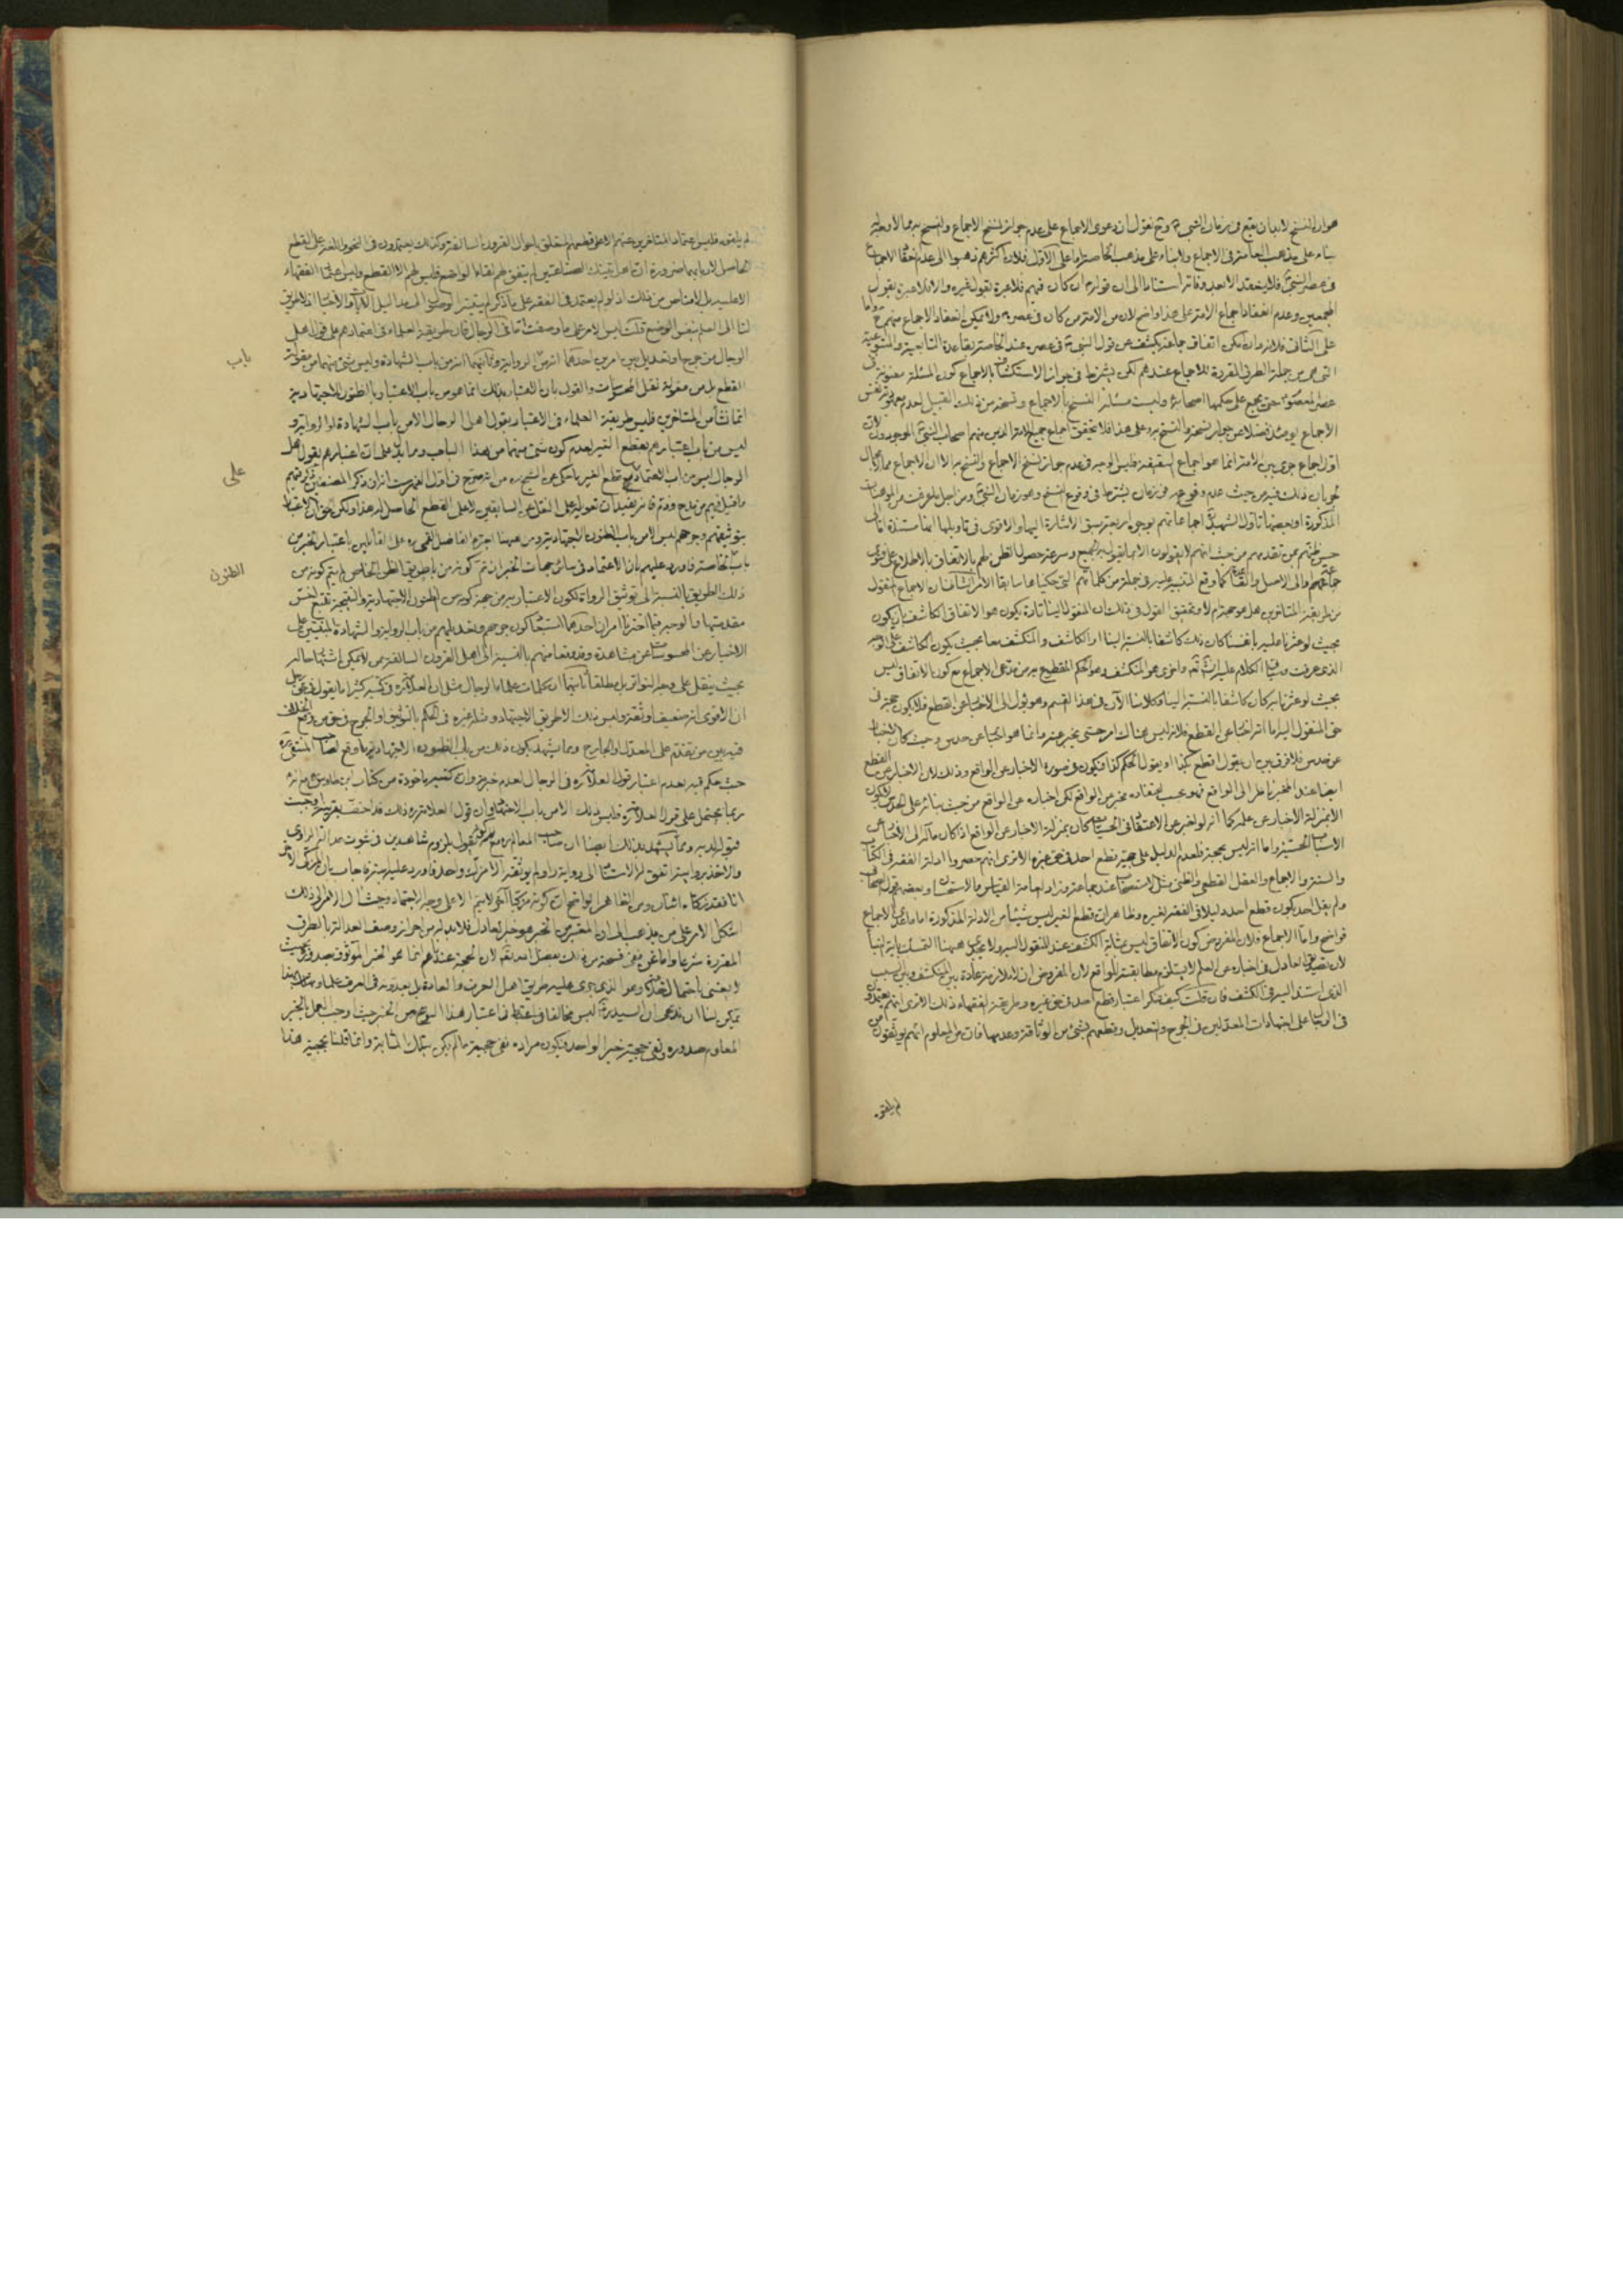 هو ان النسخ لا بد ان يقع في زمان النبي ص و ح نقول ان دعوى الاجماع على عدم جواز نسخ الاجماع والنسخ به
بناء على مذهب العامة في الاجماع واما بناء على مذهب الخاصة اما على الاول فلان اكثرهم ذهبوا الى عدم تحقق الاجماع
في عصر النبي فلا ينعقد الا بعد وفاته استنادا الى ان قوله ان كان فيهم فلا عبرة بقول غيره والا فلا عبرة بقول
المجمعين وعدم انعقاد اجماع الامة على هذا واضح لان من الامة من كان في عصره ولا يمكن انعقاد الاجماع منهم ح واما
على الثاني فلانه وان امكن اتفاق جماعة يكشف عن قول النبي ص في عصره عند الخاصة بقاعدة التابعية والمتبوعية
التي هي من جملة الطرق المقررة للاجماع عندهم لكن يشترط في جواز الاستكشاف بالاجماع كون المسئلة معنونة في
عصر المعصوم حتى يجمع على حكمها اصحابه وليست مسئلة النسخ بالاجماع ونسخه من ذلك القبيل لعدم
الاجماع يومئذ فضلا عن جواز نسخه والنسخ به وعلى هذا فلا يتحقق اجماع جميع الامة الذين منهم اصحاب النبي الموجودون لان
اول اجماع جرى بين الامة انما هو اجماع السقيفة فليس الوجه في عدم جواز نسخ الاجماع والنسخ به الا ان الاجماع
ذلك فيه من حيث عدم وقوعه في زمان يشترط في وقوع النسخ وهو زمان النبي ومن اجل ما عرفت من الموهنات
المذكورة او بعضها تاول الشهيد اجماعاتهم بوجوه اربعة سبق الاشارة اليها والاقوى في تاويلها انها مستندة اما الى
حسن ظنهم بمن تقدمهم من حيث انهم لا يقولون الا بما يقول به الجميع وسرعة حصول الظن لهم بالاتفاق بالاطلاع على فتوى
جماعة منهم واما الى الاصل والقاعدة كما وقع التنبيه عليه في جملة من كلماتهم التي حكيناها سابقا الامر الثاني ان الاجماع المنقول
من طريقة المتاخرين هل هو حجة ام لا وتحقيق القول في ذلك ان المنقول الينا تارة يكون هو الاتفاق الكاشف بان يكون
بحيث لو عثرنا عليه بانفسنا كان ذلك كاشفا بالنسبة الينا او الكاشف والمنكشف معا بحيث يكون الكاشف على الوجه
الذي عرفت وسياتي الكلام عليه انشاء الله تعالى واخرى هو المنكشف وهو الحكم المقطوع به من مدعي الاجماع مع كون الاتفاق ليس
بحيث لو عثرنا به كان كاشفا بالنسبة الينا وكلامنا الآن في هذا القسم وهو يؤل الى الاخبار عن القطع فلا يكون حجة في
حق المنقول اليه اما انه اخبار عن القطع فلانه ليس هناك امر حسي يخبر عنه وانما هو اخبار عن حدس وحيث كان الاخبار
عن حدس فلا فرق بين ان يقول اقطع بكذا او يقول الحكم كذا فيكون في صورة الاخبار عن الواقع وذلك لان الاخبار عن القطع
ايضا عند المخبر ناظر الى الواقع فهو بحسب اعتقاده مخبر عن الواقع لكن اخباره عن الواقع من حيث بنائه على الحدس لا يكون
الا بمنزلة الاخبار عن علمه كما انه لو اخبر عن الاعتقاد في الحسيات كان بمنزلة الاخبار عن الواقع اذا كان مآله الى الاخبار عن
الاسباب الحسية واما انه ليس بحجة فلعدم الدليل على حجية قطع احد في حق غيره الا ترى انهم حصروا ادلة الفقه في الكتاب
والسنة والاجماع والعقل القطعي والظني مثل الاستصحاب عند جماعة وزاد العامة القياس والاستحسان وبعضهم قول الصحابي
ولم يقل احد بكون قطع احد دليلا في الفقه لغيره وظاهر ان قطع الغير ليس شيئا من الادلة المذكورة اما ما عدا الاجماع
فواضح واما الاجماع فلان المفروض كون الاتفاق ليس بمثابة الكشف عند المنقول اليه ولا يجدي ههنا التمسك باية النبأ
لان تصديق العادل في اخباره عن العلم لا يستلزم مطابقته للواقع لان المفروض ان لا ملازمة عادة بين المنكشف وبين السبب
الذي استند اليه في الكشف فان قلت كيف تنكر اعتبار قطع احد في حق غيره وطريقة الفقهاء ذلك الا ترى انهم يعتمدون
في الرجال على اجتهادات المعدلين في الجرح والتعديل وقطعهم بشيء من الوثاقة وعدمها فان من المعلوم انهم يوثقون من
لم يلقوه
لم يلقوه فليس اعتماد المتاخرين عنهم الا على قطعهم المتعلق باحوال القرون السالفة وكذلك يعتمدون في النحو واللغة على القطع
الحاصل لاربابهما ضرورة ان اهل تينك الصناعتين لم يتفق لهم لقاء الواضع فليس لهم الا القطع وليس
الا عليه بل لا مناص من ذلك اذ لو لم يعتمد في الفقه على ما ذكر لم يتيسر الوصول الى مداليل الكتاب والاخبار اذ لا طريق
لنا الى العلم بنفس الوضع قلت ليس الامر على ما وصفت اما في الرجال فان طريقة العلماء في اعتمادهم على قول اهل
الرجال من جرح او تعديل بين امرين احدهما انه من باب الرواية وثانيهما انه من باب الشهادة وليس شيء منهما من مقولة
القطع بل من مقولة نقل المحسوسات والقول بان اعتبار ذلك انما هو من باب الاعتبار بالظنون الاجتهادية
انما نشأ من المتاخرين فليس طريقة العلماء في الاعتبار بقول اهل الرجال الا من باب الشهادة او الرواية و
ليس من باب اعتبارهم بقطع الغير لعدم كون شيء منهما من هذا الباب ومما يدل على ان اعتبارهم بقول اهل
الرجال ليس من باب الاعتماد على قطع الغير ما حكي عن الشيخ ره من انه صرح في اول الفهرست انه ان ذكر المصنفين
وما قيل فيهم من مدح وذم فانه يفيد ان تعويله على النقل عن السابقين لا على القطع الحاصل له هذا ولكن الحق ان الاعتبار
بتوثيقهم وجرحهم ليس الا من باب الظنون الاجتهادية ومن هيهنا اعترض الفاضل القمي ره على القائلين باعتبار الخبر من
باب الخاصة فاورد عليهم بان الاعتماد في سائر جهات الخبر ان تم كونه من باب طريق الظن الخاص لم يتم كونه من
ذلك الطريق بالنسبة الى توثيق الرواة لكون الاعتبار به من جهة كونه من الظنون الاجتهادية والنتيجة تتبع اخس
مقدمتيها والوجه فيما اخترنا امران احدهما استبعاد كون جرحهم وتعديلهم من باب الرواية والشهادة المبتنيتين على
الاخبار عن المحسوسات عن مشاهدة وقد وقعا منهم بالنسبة الى اهل القرون السالفة ممن لا يمكن اشتهار حاله
بحيث ينقل على وجه التواتر بل مطلقا ثانيهما ان كلمات علماء الرجال مثل ان العلامة ره في كتبه كثيرا ما يقول في حق رجل
ان الاقوى انه ضعيف او ثقة وليس ذلك الا طريق الاجتهاد ومثله غيره في الحكم بالتوثيق او الجرح في حق من وقع الخلاف
فيه بين من تقدم على المعدل والجارح ومما يشهد بكون ذلك من باب الظنون الاجتهادية ما وقع لصاحب المنتقى ره
حيث حكم فيه بعدم اعتبار قول العلامة ره في الرجال لعدم خبرته وان كتبه ماخوذة من كتاب ابن طاوس ره
ربما يحتمل على قول العلامة ره فليس ذلك الا من باب الاجتهاد
قبول قوله به ومما يشهد بذلك ايضا ان صاحب المعالم ره مع انه ممن يقول بلزوم شاهدين في ثبوت عدالة الراوي
والاخذ بروايته اتفق له الاستناد الى رواية راو لم يوثقه الا مزك واحد فاورد عليه ابنه فاجاب بان المزكي الآخر
انا فقد زكاه اثنان ومن الظاهر الواضح ان كونه مزكيا آخر لا يتم الا على وجه الاجتهاد وحيث آل الامر الى ذلك
اشكل الامر على من يذهب الى ان المعتبر من الخبر هو خبر العادل فلا بد له من احراز وصف العدالة بالطرق
المقررة شرعا واما نحن ففي فسحة من ذلك بفضل الله تعالى لان الحجة عندنا هو انما هو الخبر الموثوق بصدوره بحيث
لا يعتنى باحتمال خلافه وهو الذي جرى عليه طريق اهل العرف والعادة بل يعدونه في العرف علما ومن هنا
يمكن لنا ان ندعي ان السيد ره ليس مخالفا في اعتبار هذا النوع من الخبر حيث اوجب العمل بالخبر
المعلوم صدوره ونفى حجية خبر الواحد فيكون مراده نفي حجية ما لم يكن بتلك المثابة وانما قلنا بحجية هذا
باب
على
الظنون